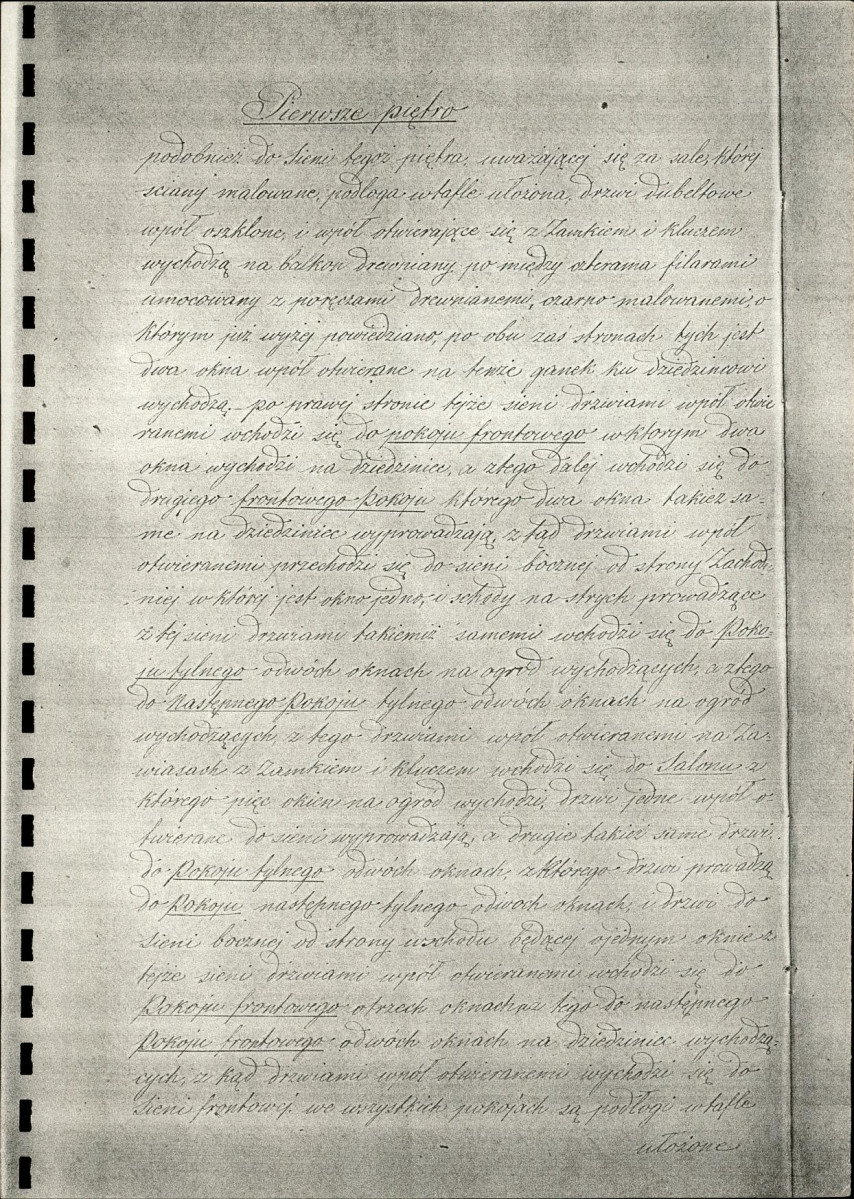 Pierwsze piętro
podobnież do sieni tegoż piętra, uważającej się za salę, której
sciany malowane, podłoga w tafle ułożona, drzwi dubeltowe
wpół oszklone, i wpół otwierające się z Zamkiem i kluczem
wychodzą na balkon drewniany po między czterama filarami
umocowany z poręczami drewnianemi, czarno malowanemi, o
ktorym już wyżej powiedziano, po obu zaś stronach tych jest
dwa okna wpół otwierane na tenże ganek ku dziedzincowi
wychodzą. po prawej stronie tejże sieni drzwiami wpół otwie
ranemi wchodzi się do pokoju frontowego w ktorym dwa
okna wychodzi na dziedziniec, a ztego dalej wchodzi się do
drugiego frontowego Pokoju którego dwa okna takież sa-
me na dziedziniec wyprowadzają, z tąd drzwiami wpół
otwieranemi przechodzi się do sieni bocznej od strony Zachod-
niej w której jest okno jedno, i schody na strych prowadzące
z tej sieni drzwiami takiemiż samemi wchodzi się do Poko-
ju tylnego odwóch oknach na ogród wychodzących, a ztego
do Następnego Pokoju tylnego odwóch oknach na ogród
wychodzących z tego drzwiami wpół otwieranemi na Za-
wiasach z Zamkiem i kluczem wchodzi się do Salonu z
którego pięc okien na ogrod wychodzi, drzwi jedne wpół o-
twierane do sieni wyprowadzają, a drugie takież same drzwi
do Pokoju tylnego odwóch oknach, z którego drzwi prowadzą
do Pokoju następnego tylnego odwóch oknach, i drzwi do
sieni bocznej od strony wschodu będącej ojednym oknie z
tejże sieni drzwiami wpół otwieranemi wchodzi się do
Pokoju frontowego otrzech oknach, z tego do następnego
Pokoju frontowego odwóch oknach na dziedziniec wychodzą-
cych, z kąd drzwiami wpół otwieranemi wychodzi się do
Sieni frontowej. we wszystkich pokojach są podłogi w tafle
ułożone